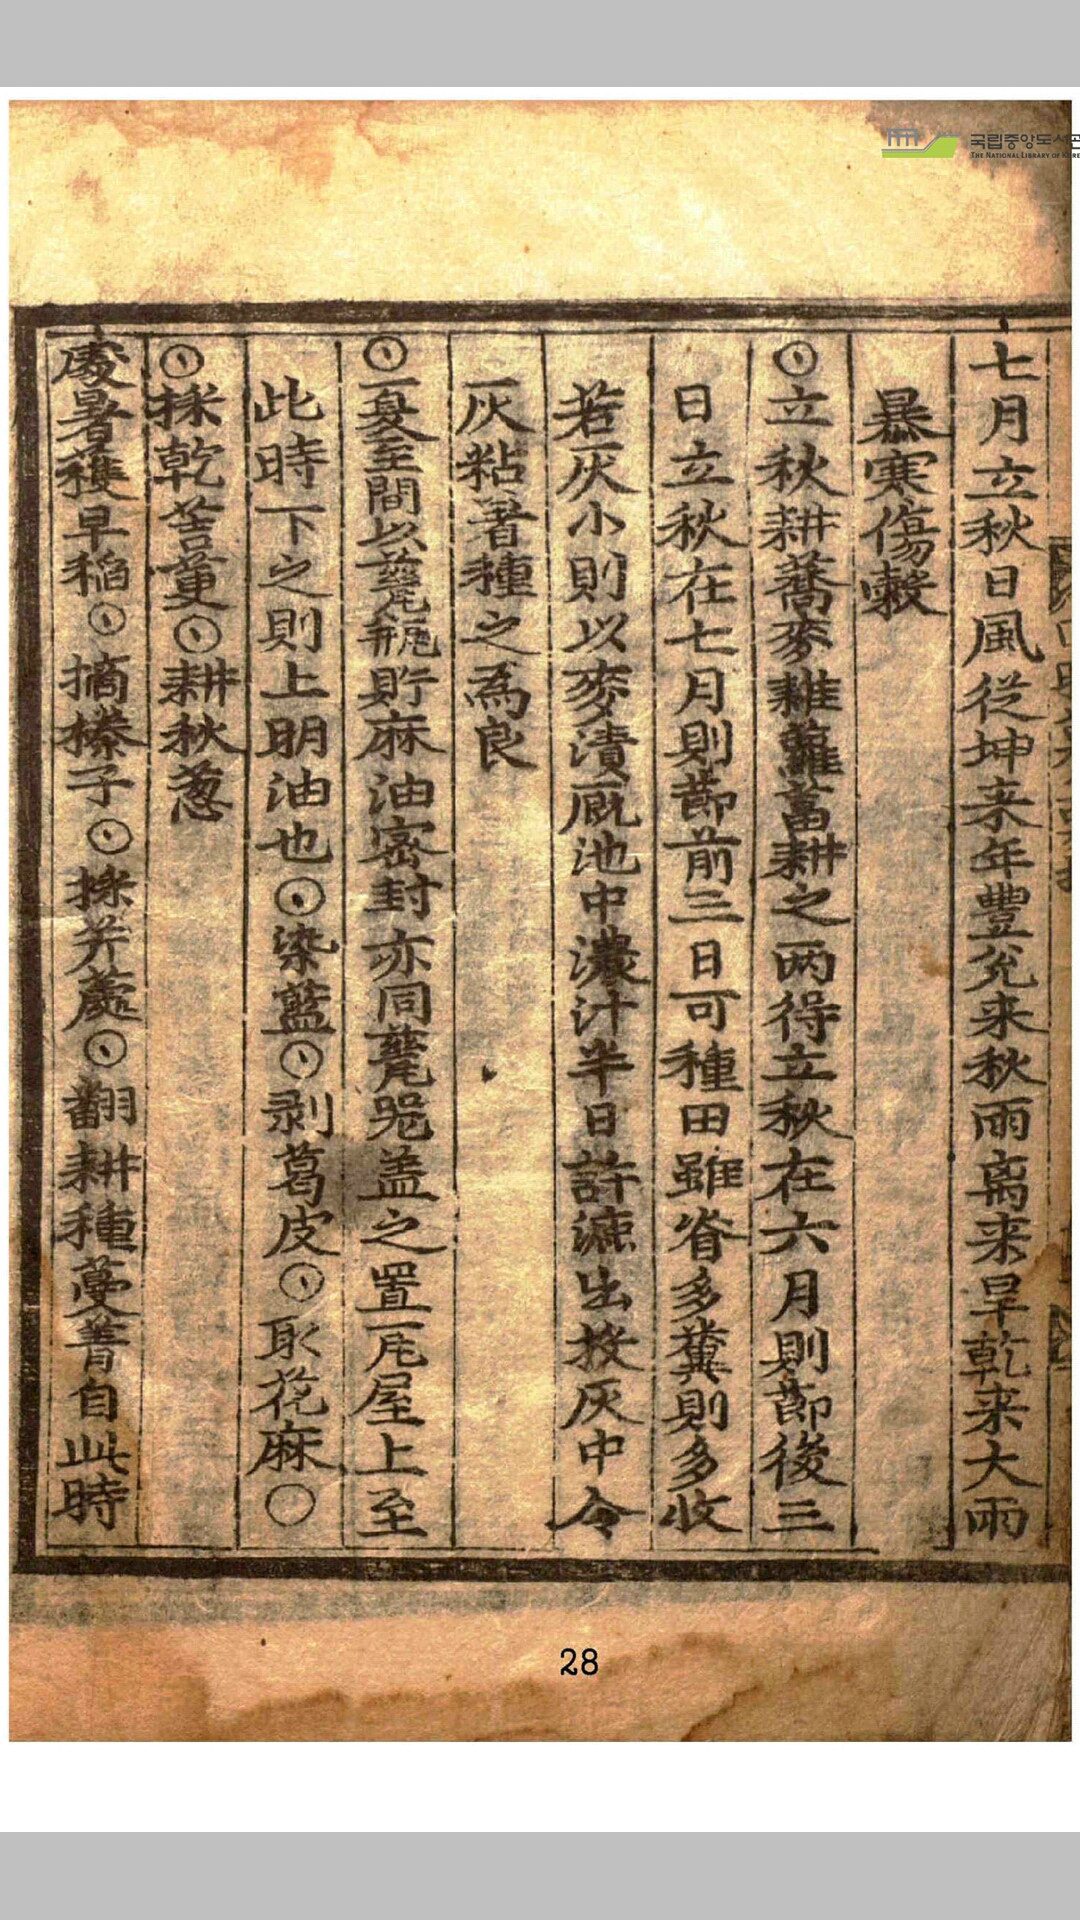 국립중앙도서관
THE NATIONAL LIBRARY OF KORE
七月立秋日風從坤来年豊兊来秋雨离来旱乾来大雨
暴寒傷糓
立秋耕蕎麥雜蘿葍耕之两得立秋在六月則節後三
日立秋在七月則節前三日可種田雖脊多糞則多收
若灰小則以麥漬厩池中濃汁半日許漉出投灰中令
灰粘着種之為良
夏至間以甆瓶貯麻油密封亦同甆器盖之置瓦屋上至
此時下之則上明油也 染藍 剥葛皮 取花麻〇
採乾苦蕒 耕秋葱
處暑穫早稲 摘榛子 採芥蘆 翻耕種蔓菁自此時
28